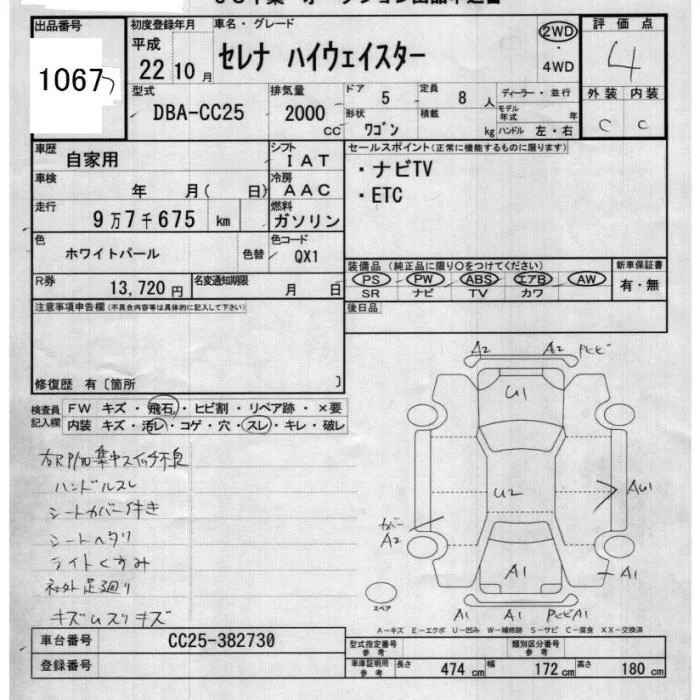 出品番号 初度登録年月 車名・グレード 2WD ・ 4WD 評価点
1067
平成 22 10月 セレナ ハイウェイスター 4
型式 DBA-CC25 排気量 2000 CC ドア 5 定員 8 人 ディーラー・並行 外装 内装
形状 ワゴン 積載 kg モデル年式 年 ハンドル 左・右 C C
車歴 自家用 シフト IAT セールスポイント(正常に機能するものに限ります)
車検 年 月( 日) 冷房 AAC ・ナビTV
走行 9万7千675 km 燃料 ガソリン ・ETC
色 ホワイトパール 色替 色コード QX1
装備品(純正品に限り○をつけてください) 新車保証書
R券 13,720円 名変通知期限 月 日 PS PW ABS エアB AW 有・無
SR ナビ TV カワ
注意事項申告欄(不具合内容等は具体的に記入して下さい) 後日品
修復歴 有〔箇所 〕
検査員記入欄 FW キズ・飛石・ヒビ割・リペア跡・×要
内装 キズ・汚レ・コゲ・穴・スレ・キレ・破レ
右R P/W集中スイッチ不良
ハンドルスレ
シートカバー付き
シートヘタリ
ライトくすみ
社外足廻り
キズ ムスリキズ
A2 A2 Pヒビ
U1
U2 AU1
カバー A2
A1 A1
スペア
A1 A1 PヒビA1
A-キズ E-エクボ U-凹み W-補修跡 S-サビ C-腐食 XX-交換済
車台番号 CC25-382730 型式指定番号 参考 類別区分番号 参考
登録番号 車庫証明用 参考 長さ 474 cm 幅 172 cm 高さ 180 cm